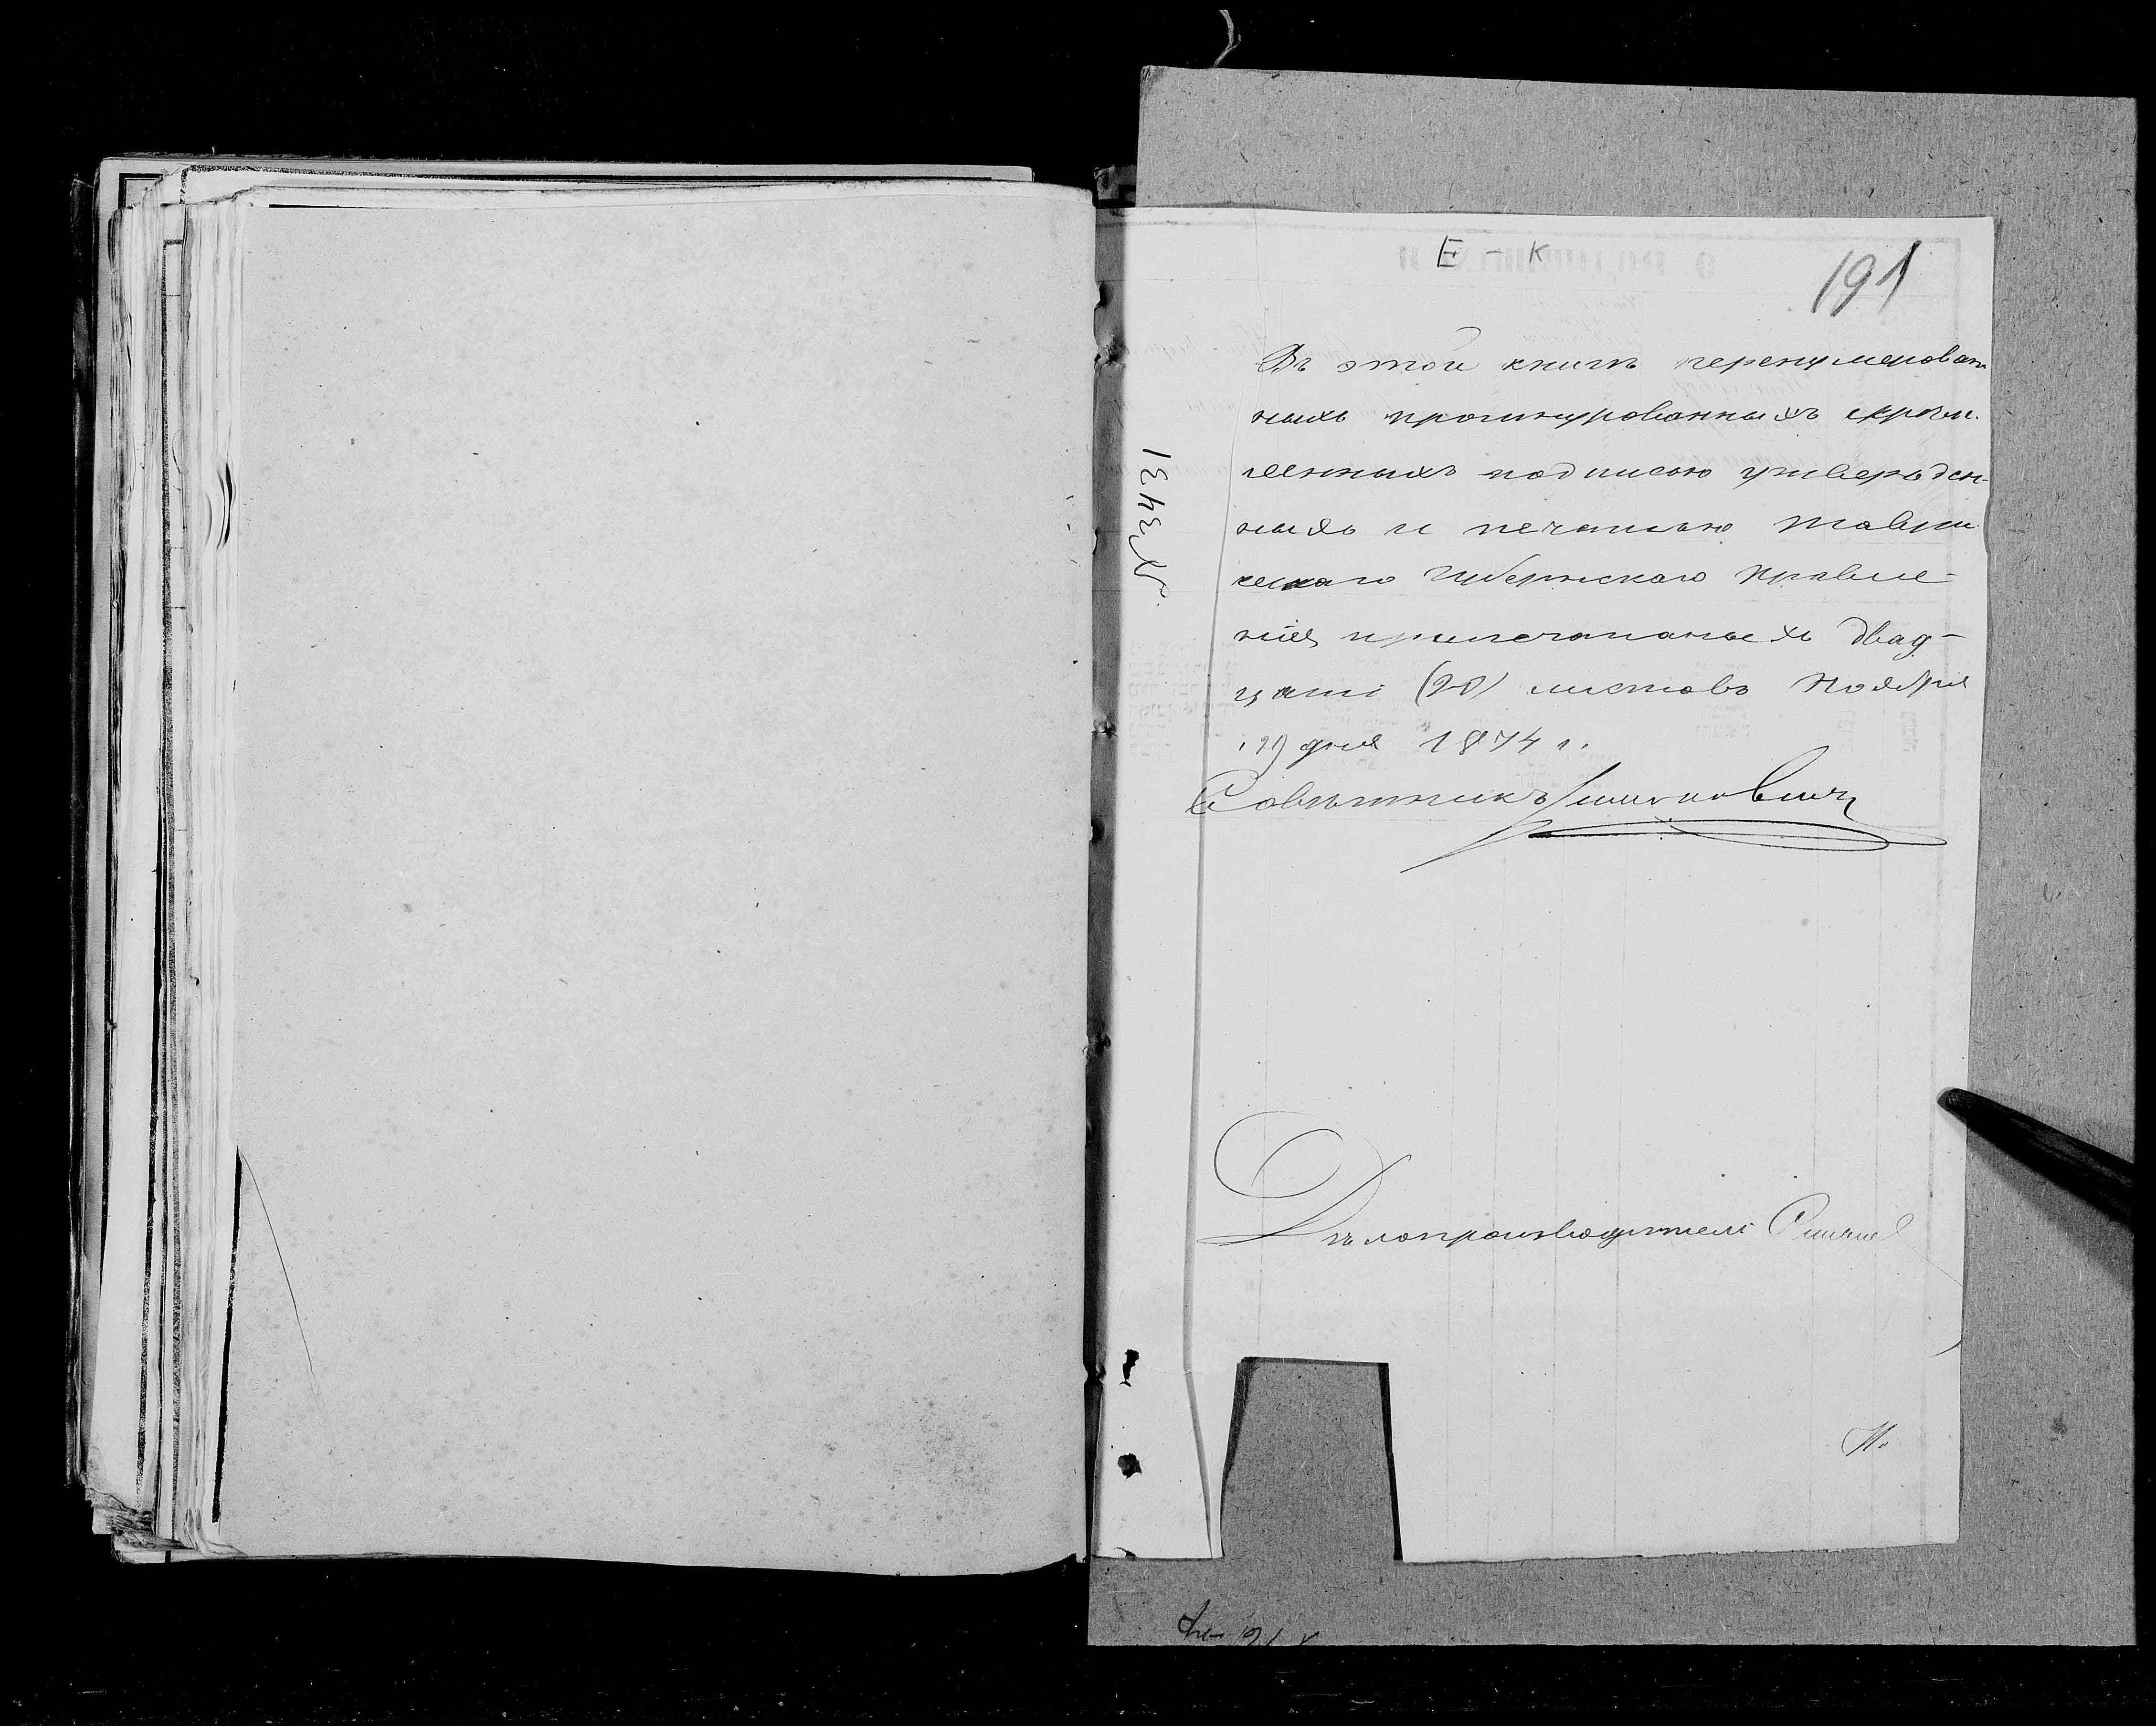 Е - К
191
Въ этой книгѣ перенумерован
ныхъ прошнурованныхъ скрѣп.
ленныхъ подписью утвержден-
ныхъ и печатью Таври
ческаго Губернскаго Правле-
нія припечатаныхъ двад-
цати (20) листовъ Ноября
29 дня 1874 г.
Совѣтникъ
Дѣлопроизводитель
№ 3431